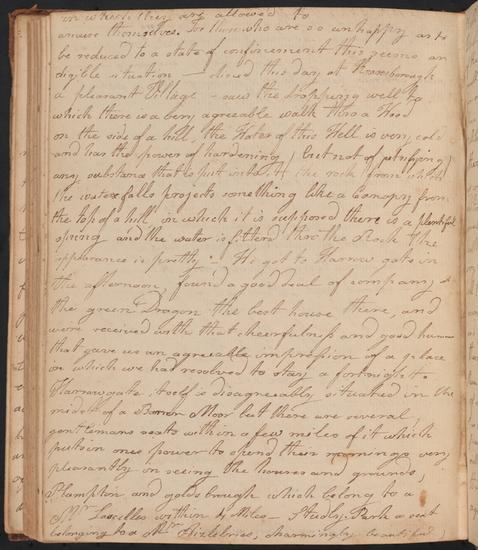 in which they are allowed to
amuse themselves. for those who are so unhappy as to
be reduced to a state of confinement this seems an
eligible situation — dined this day at Knaresborough
a pleasant Village — saw the dropping well to
which there is a very agreeable walk thro a Wood
on the side of a hill, the Water of this Well is very cold
and has the power of hardening (but not of petrifying)
any substance that is put into it the rock from which
the water falls projects something like a Canopy from
the top of a hill in which it is supposed there is a plentiful
spring and the water is filterd thro the Rock the
appearance is pretty — We got to Harrow gate in
the afternoon, found a good deal of company at
the green Dragon the best house there, and
were received with that cheerfulness and good humour
that gave us an agreeable impression of a place
in which we had resolved to stay a fortnight
Harrowgate itself is disagreeably situated in the
midst of a Barren Moor but there are several
gentlemans seats within a few miles of it which
puts in ones power to spend their mornings very
pleasantly in seeing the houses and grounds,
Plampton and goldsbrough which belong to a
Mr Lascelles within Miles — Studly Park a seat
belonging to a Mr charmingly beautiful,